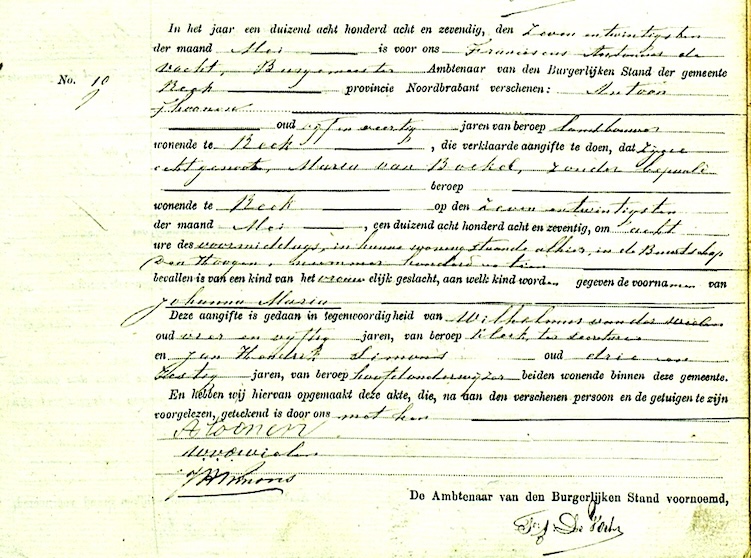 In het jaar een duizend acht honderd acht en zevendig, den Zeven entwintigsten
der maand Mei is voor ons Franciscus Antonius de
Burgemeester Ambtenaar van den Burgerlijken Stand der gemeente
No. 10
Reek provincie Noordbrabant verschenen: Antoon
oud agt en veertig jaren van beroep landbouwer
wonende te Reek, die verklaarde aangifte te doen, dat Zijne
echtgenoote, Maria van Boekel, zonder bepaald
beroep
wonende te Reek op den Zeven entwintigsten
der maand Mei, een duizend acht honderd acht en zeventig, om acht
ure des voormiddags, in hunne woning staande alhier, in de Buurtschap
nummer honderd en tien
bevallen is van een kind van het vrouwelijk geslacht, aan welk kind worden gegeven de voornamen van
Johanna Maria
Deze aangifte is gedaan in tegenwoordigheid van Wilhelmus van der Wielen
oud vier en vijftig jaren, van beroep klerk ter secretarie
en Jan Hendrik Simons oud drie en
Zestig jaren, van beroep hoofdonderwijzer beiden wonende binnen deze gemeente.
En hebben wij hiervan opgemaakt deze akte, die, na aan den verschenen persoon en de getuigen te zijn
voorgelezen, geteekend is door ons met hen
JHSimons
De Ambtenaar van den Burgerlijken Stand voornoemd,